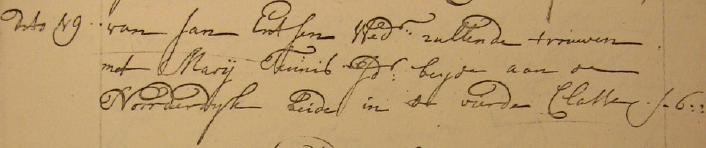 dito N9 van Jan Entsen Wed:r zullende trouwen
met Marij Teunis Jd: beijde aan de
Noorderdijk beide in de vierde Classe f 6::